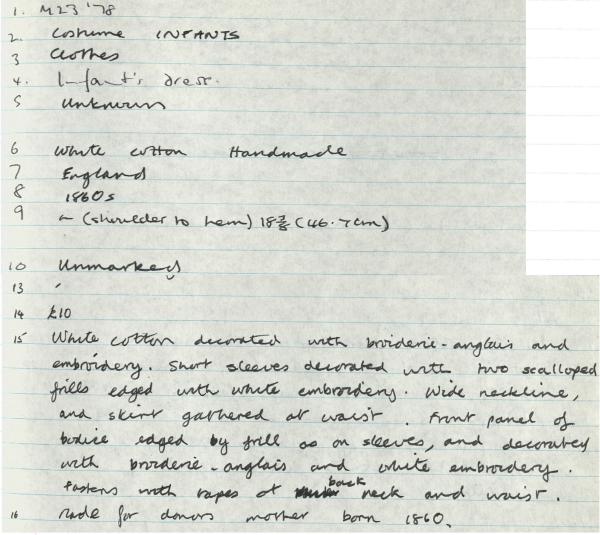 1. M23 '78
2. Costume INFANTS
3 Clothes
4. Infant's dress.
5 Unknown
6 White cotton Handmade
7 England
8 1860s
9 L (shoulder to hem) 18⅜ (46.7cm)
10 Unmarked
13 '
14 £10
15 White cotton decorated with broiderie-anglais and
embroidery. Short sleeves decorated with two scalloped
frills edged with white embroidery. Wide neckline,
and skirt gathered at waist. Front panel of
bodice edged by frill as on sleeves, and decorated
with broiderie-anglais and white embroidery.
Fastens with tapes at back neck and waist.
16 Made for donors mother born 1860.